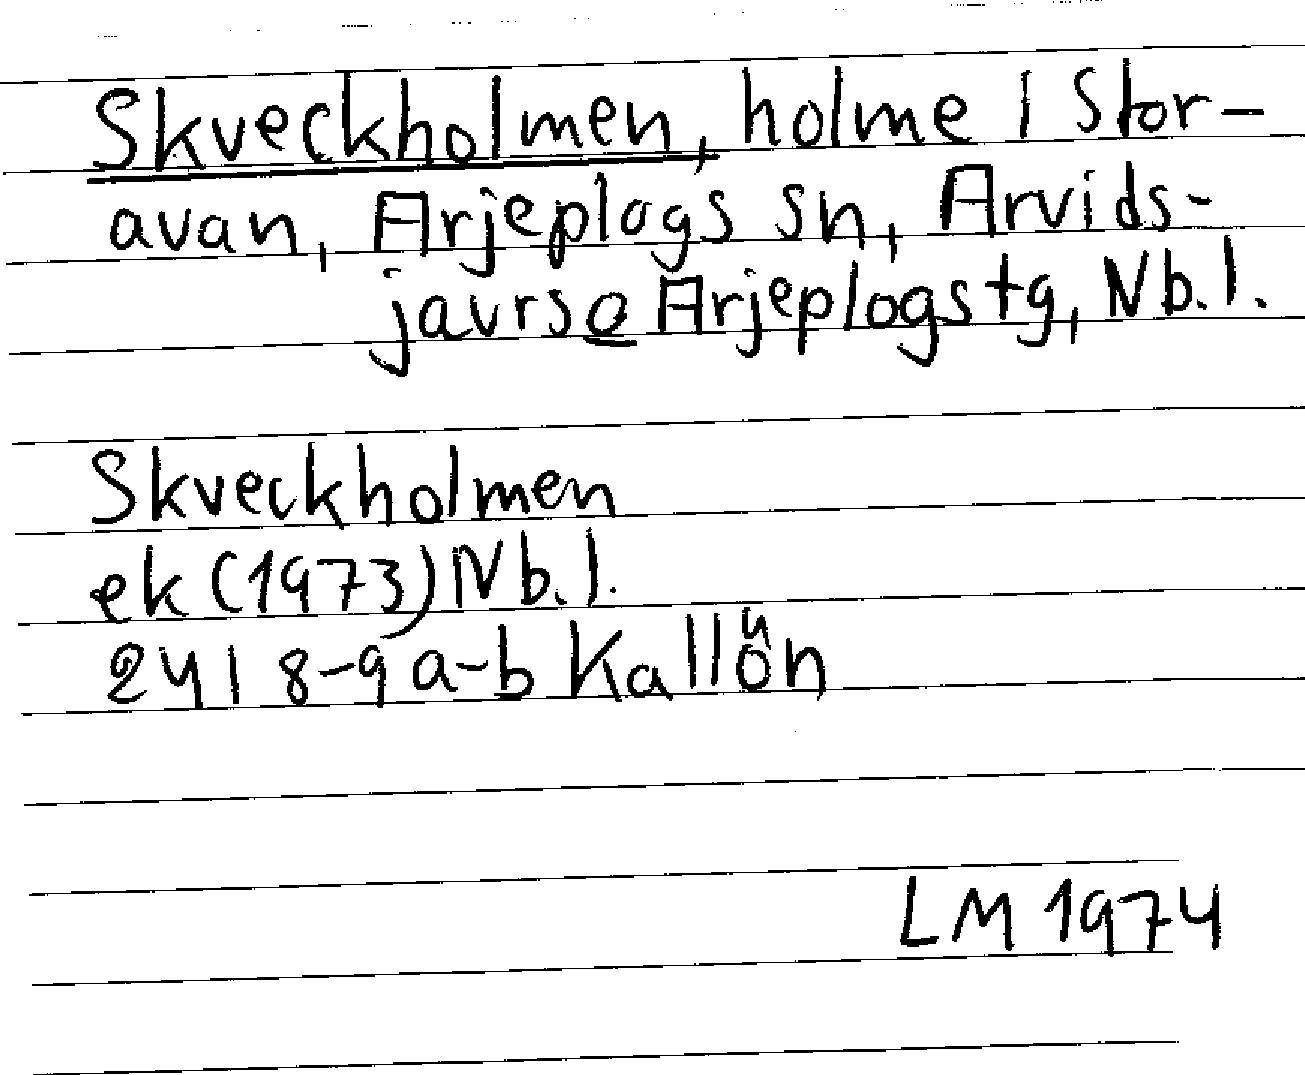 Skveckholmen, holme i Stor-
avan, Arjeplogs sn, Arvids-
javrs o Arjeplogs tg, Nb. l.
Skveckholmen
ek (1973) Nb. l.
24 I 8-9 a-b Kallön
LM 1974